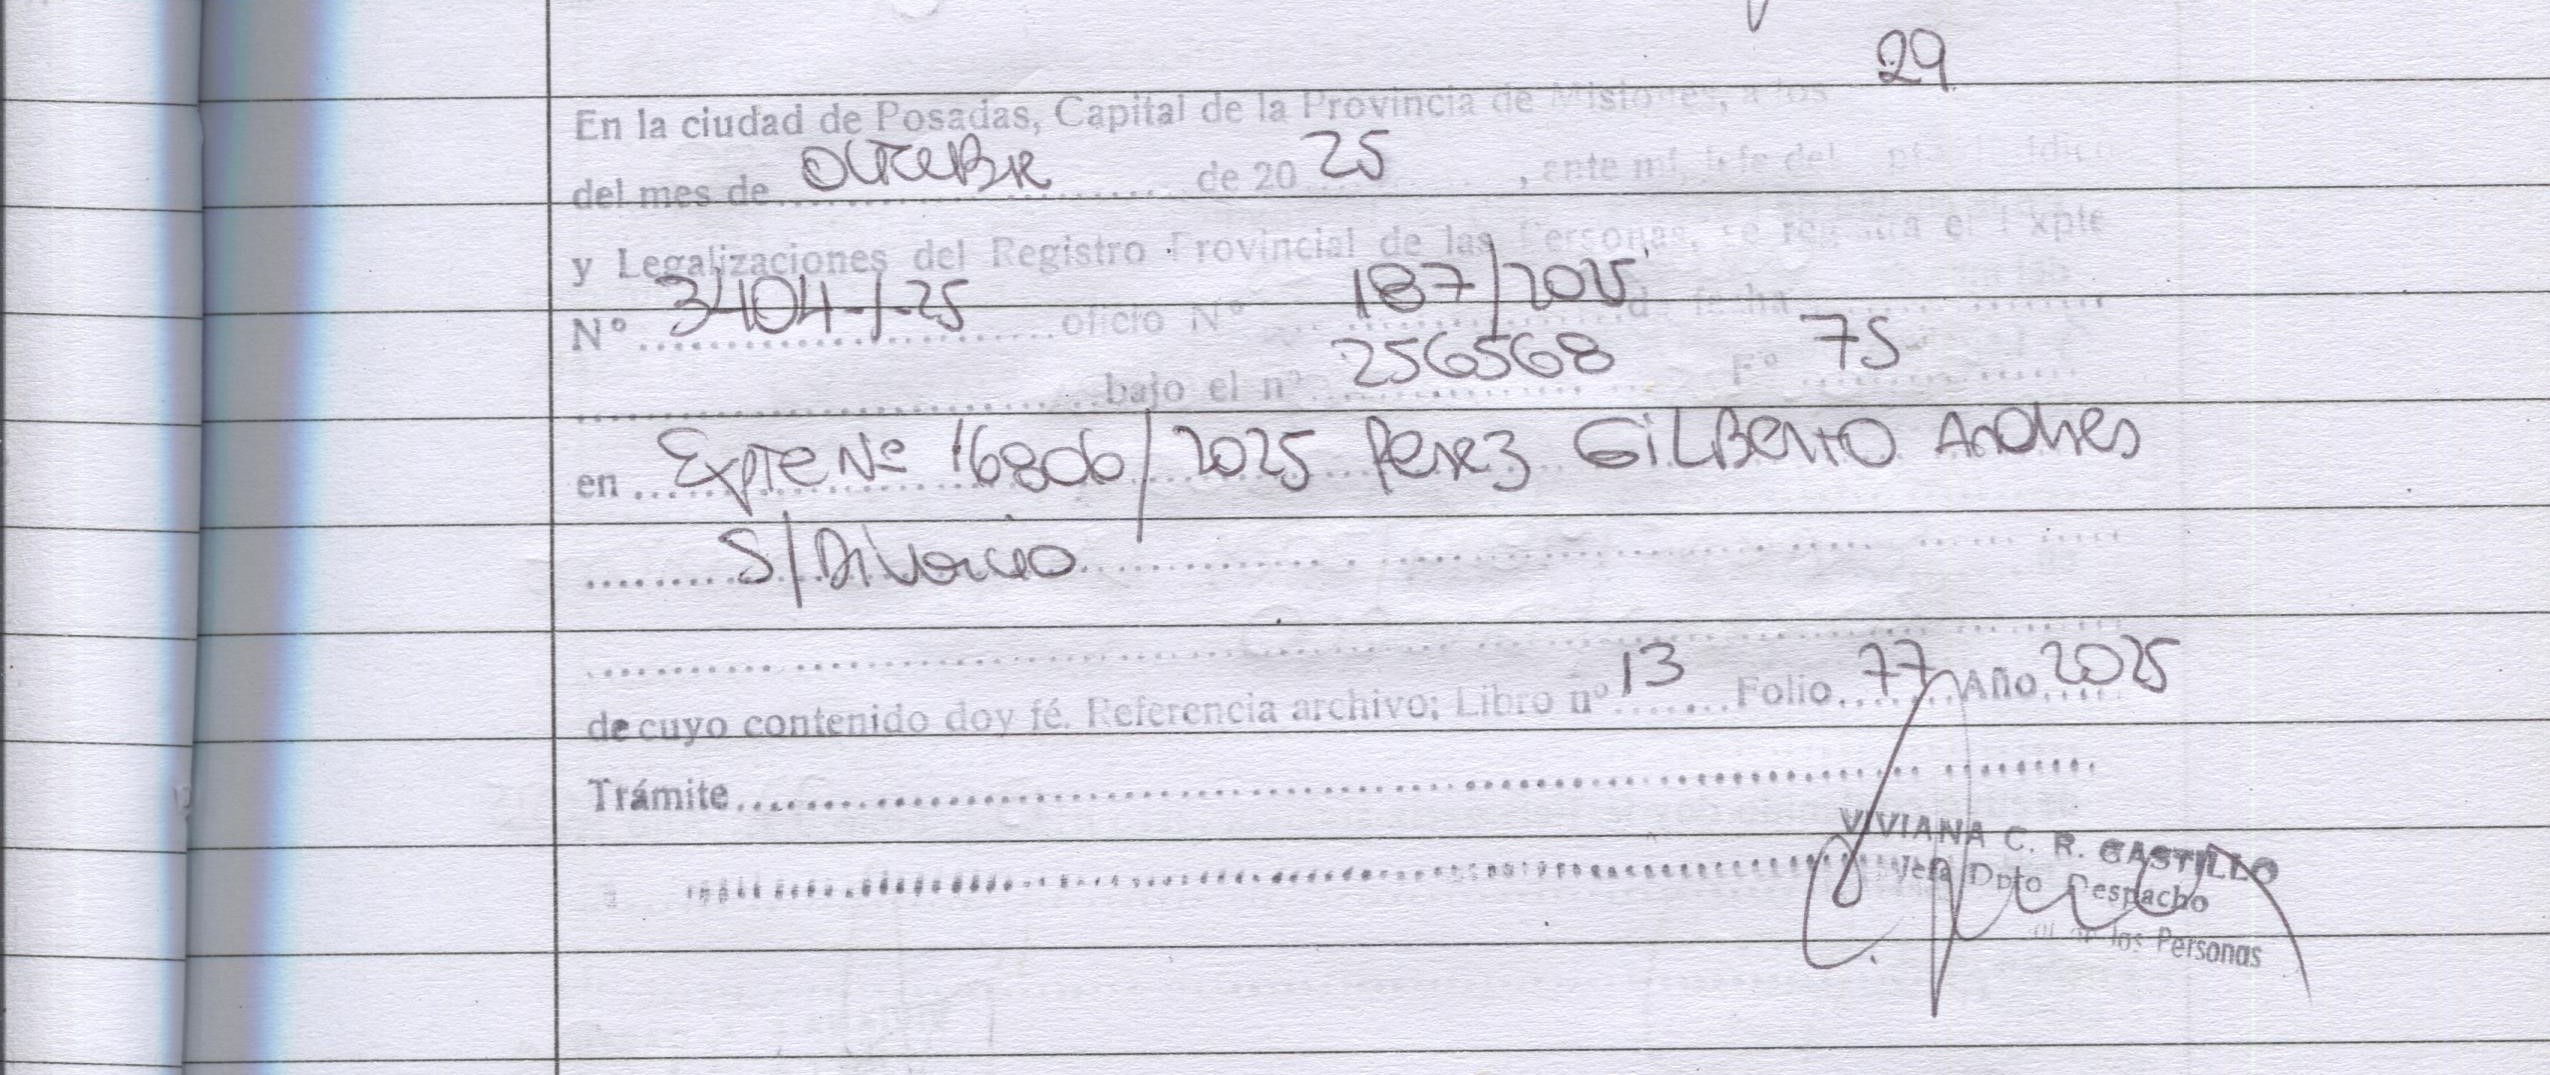 En la ciudad de Posadas, Capital de la Provincia de Misiones, a los 29
del mes de OCTUBRE de 20 25, ante mí, Jefe del
y Legalizaciones del Registro Provincial de las Personas, se registra el Expte
Nº 3404-/-25 oficio Nº 187/2025 de fecha
bajo el nº 256568 Fº 75
en Expte Nº 16806/2025 Perez GILBERTO Andres
S/Divorcio
de cuyo contenido doy fé. Referencia archivo; Libro nº 13 Folio 77 Año 2025
Trámite
VIVIANA C. R. CASTILLO
Jefa Dpto Despacho
de las Personas